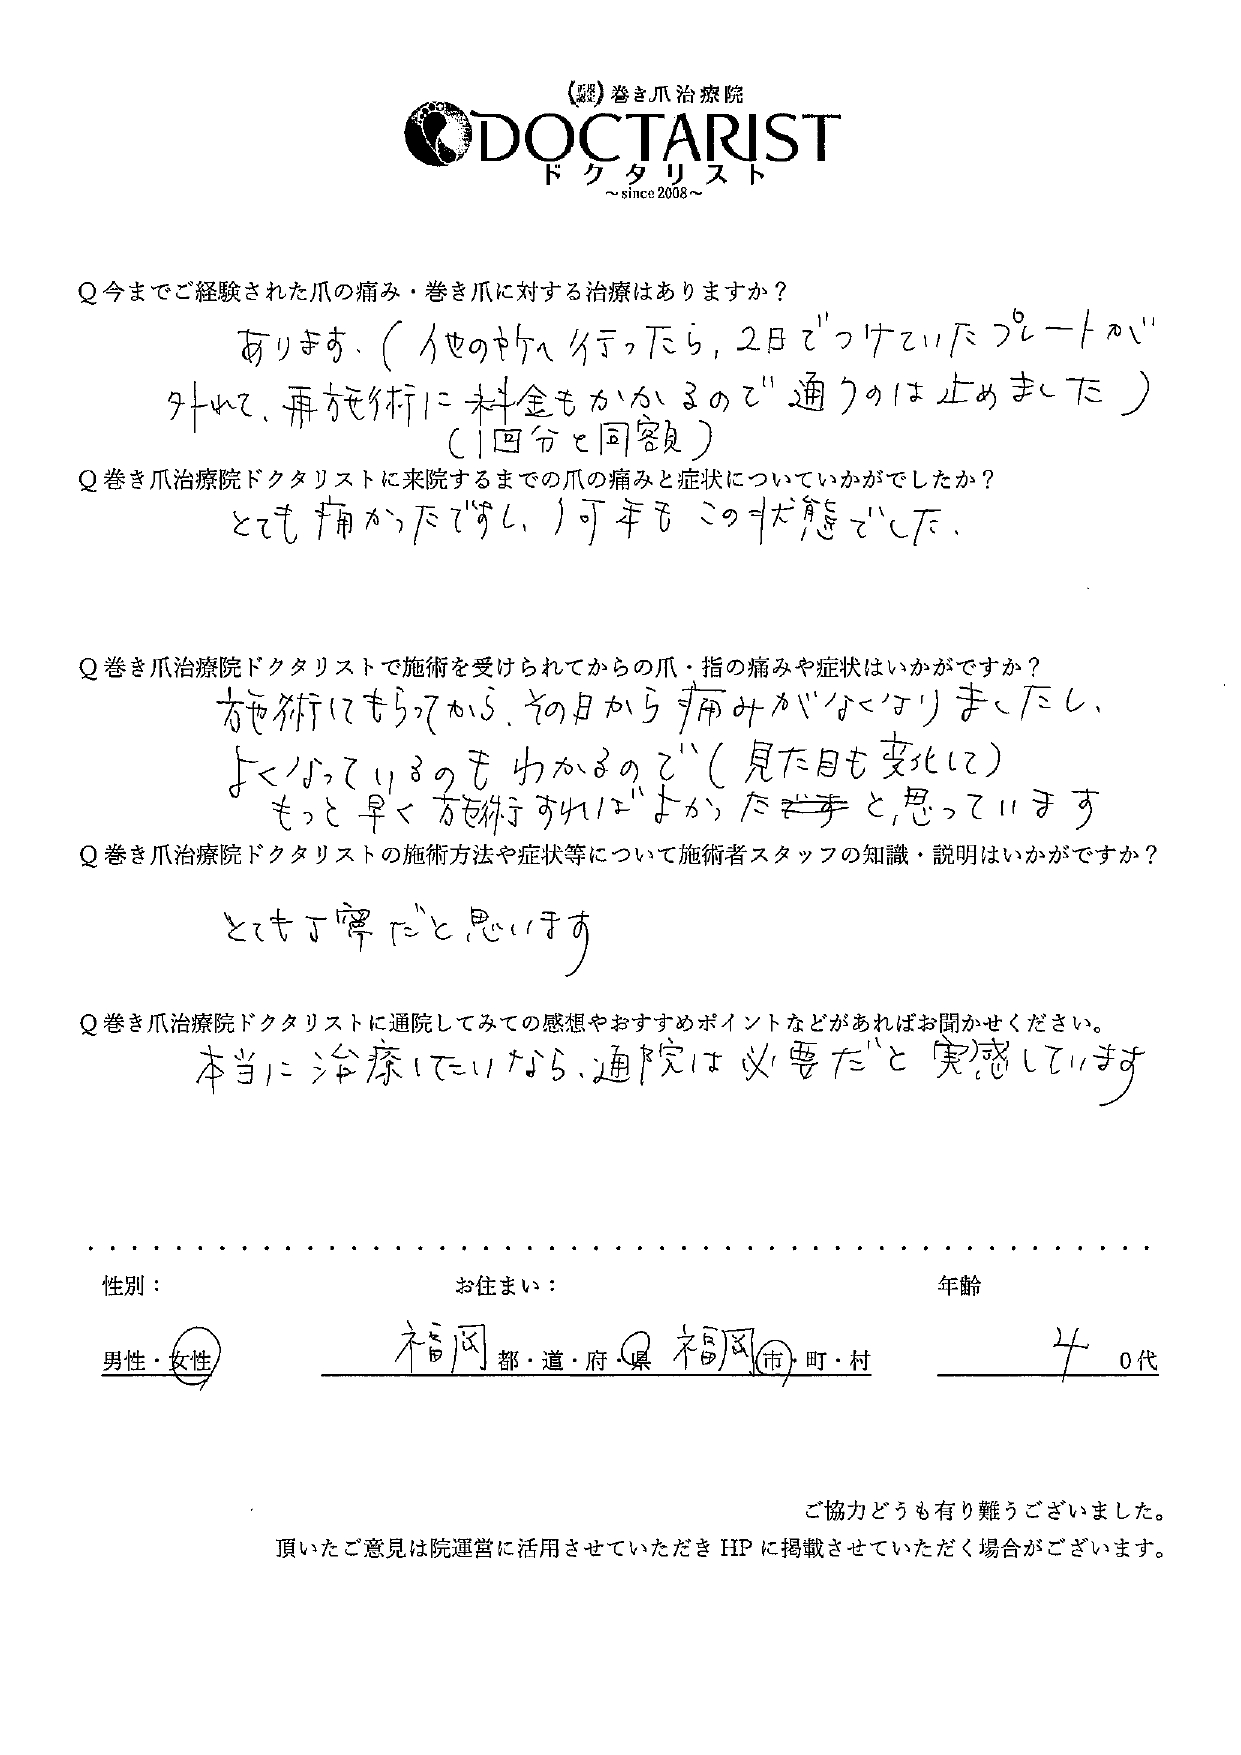 巻き爪治療院
DOCTARIST
ドクタリスト
～since 2008～
Q 今までご経験された爪の痛み・巻き爪に対する治療はありますか？
あります。(他の所へ行ったら、2日でつけていたプレートが
外れて、再施術に料金もかかるので通うのは止めました)
(1回分と同額)
Q 巻き爪治療院ドクタリストに来院するまでの爪の痛みと症状についていかがでしたか？
とても痛かったですし、何年もこの状態でした。
Q 巻き爪治療院ドクタリストで施術を受けられてからの爪・指の痛みや症状はいかがですか？
施術してもらってから、その日から痛みがなくなりましたし、
よくなっているのもわかるので(見た目も変化して)
もっと早く施術すればよかったと思っています
Q 巻き爪治療院ドクタリストの施術方法や症状等について施術者スタッフの知識・説明はいかがですか？
とても丁寧だと思います
Q 巻き爪治療院ドクタリストに通院してみての感想やおすすめポイントなどがあればお聞かせください。
本当に治療したいなら、通院は必要だと実感しています
性別： お住まい： 年齢
男性・女性 福岡 都・道・府・県 福岡 市・町・村 4 0代
ご協力どうも有り難うございました。
頂いたご意見は院運営に活用させていただき HP に掲載させていただく場合がございます。